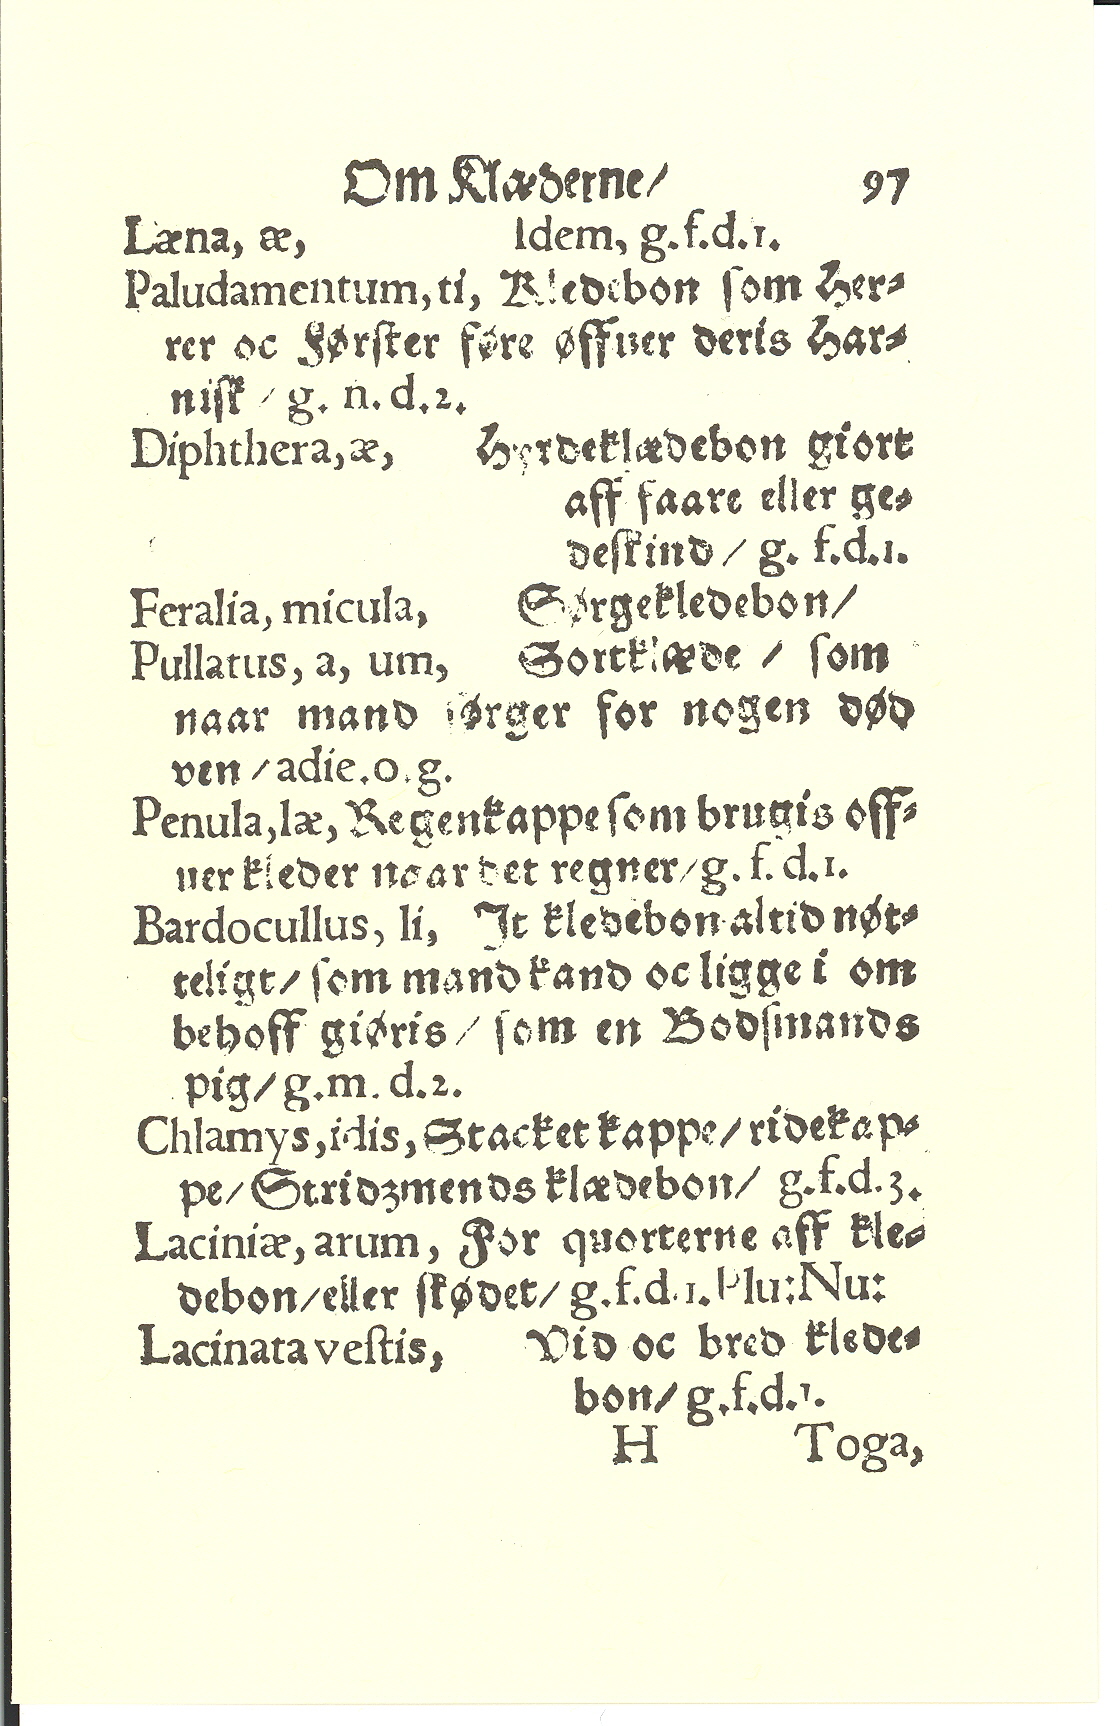 Om Klæderne/ 97
Læna, æ, Idem, g.f.d.1.
Paludamentum, ti, Kledebon som Her⸗
rer oc Førster føre øffuer deris Har⸗
nisk / g. n. d.2.
Diphthera, æ, Hyrdeklædebon giort
aff faare eller ge⸗
deskind / g. f.d.1.
Feralia, micula, Sørgekledebon/
Pullatus, a, um, Sortklæde / som
naar mand sørger for nogen død
ven / adie.o.g.
Penula, læ, Regenkappe som brugis off⸗
uer kleder naar det regner/g. f. d.1.
Bardocullus, li, It kledebon altid nøt⸗
teligt/ som mand kand oc ligge i om
behoff giøris / som en Bodsmands
pig/ g.m. d.2.
Chlamys, idis, Stacket kappe/ ridekap⸗
pe/ Stridzmends klædebon/ g.f.d.3.
Laciniæ, arum, For quorterne aff kle⸗
debon/eller skødet/ g.f.d.1. Plu:Nu:
Lacinata vestis, Vid oc bred klede⸗
bon/ g.f.d.1.
H Toga,